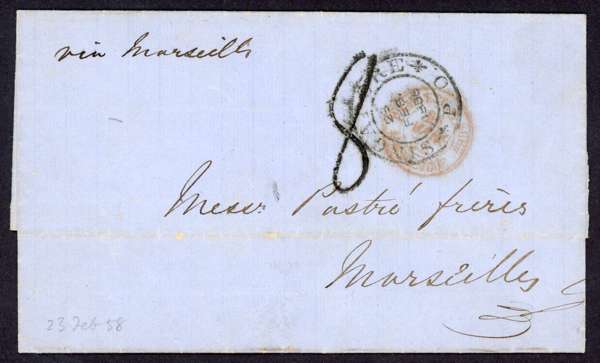 via Marseille
8
SINGAPORE * P.O. *
Messrs Pastré frères
Marseilles
23 Feb 58